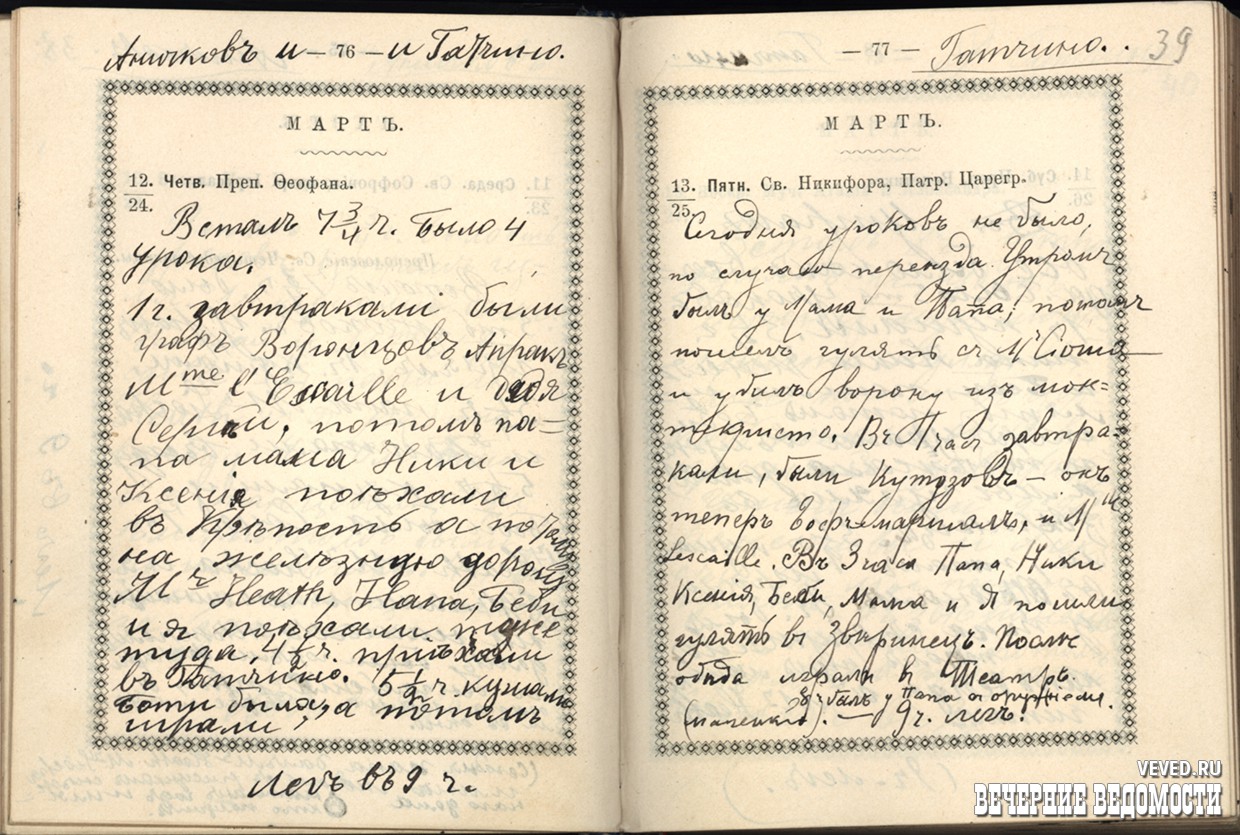 Аничковъ и — 76 — и Гатчино.
МАРТЪ.
12. Четв. Преп. Ѳеофана.
24.
Всталъ 7 3/4 ч. Было 4
урока.
1 г. завтракалі были
графъ Воронцовъ,
Mme l'Escaille и дядя
Сергѣй, потомъ па=
па мама Ники и
Ксенія поѣхали
въ Крѣпость а потомъ
на желѣзную дорогу
Mr Heath, Нана, Беби
и я поѣхали тоже
туда. 4 ч. приѣхали
въ Гатчино. 5 1/2 ч. кушали
Боти были, а потомъ
играли,
Легъ въ 9 ч.
— 77 — Гатчино. . 39
МАРТЪ.
13. Пятн. Св. Никифора, Патр. Царегр.
25.
Сегодня уроковъ не было,
по случаю переезда. Утромъ
былъ у Мама и Папа, потомъ
пошелъ гулять съ
и убилъ ворону изъ мон=
текристо. Въ часъ завтра-
кали, были Кутузовъ — онъ
теперъ Гофъ-маршалъ, и Mlle
Lescaille. Въ 3 часа Папа, Ники
Ксенія, Беби, Мама и Я пошли
гулять въ Звѣринецъ. Послѣ
обѣда играли въ Театръ.
(маленький). 8 ч былъ у Папа
— 9 ч. легъ.
VEVED.RU
ВЕЧЕРНИЕ ВЕДОМОСТИ